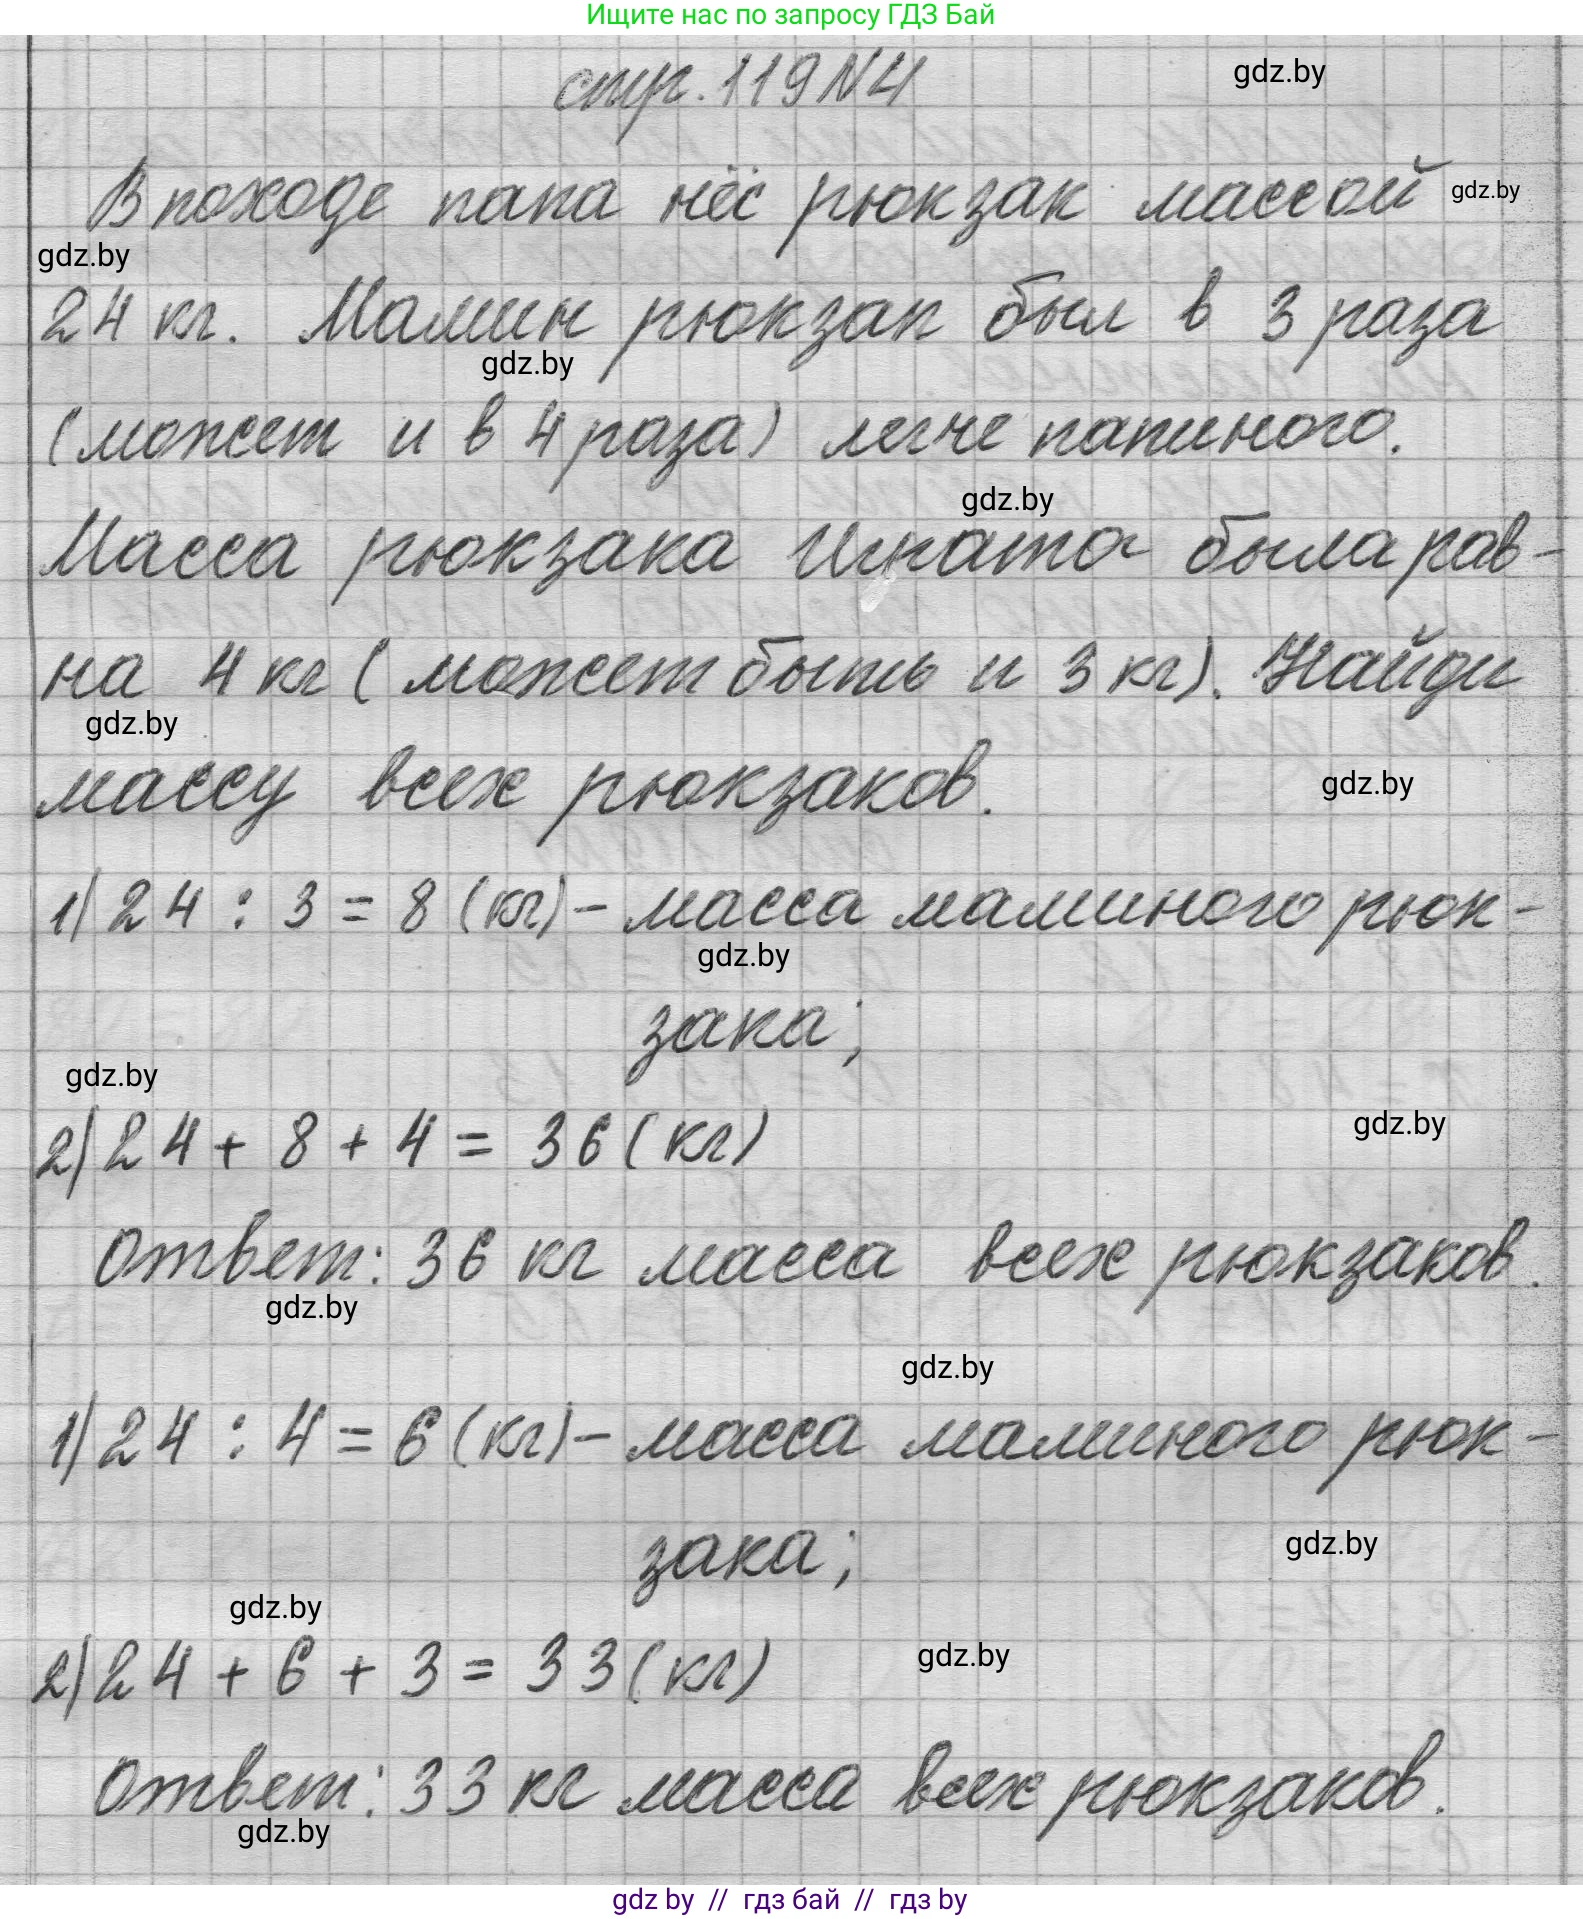 Ищите нас по запросу ГДЗ Бай
стр. 119 N4
gdz.by
В походе папа нёс рюкзак массой
gdz.by
gdz.by
24 кг. Мамин рюкзак был в 3 раза
gdz.by
(может и в 4 раза) легче папиного.
gdz.by
Масса рюкзака Игната была рав-
на 4 кг (может быть и 3 кг). Найди
gdz.by
массу всех рюкзаков.
gdz.by
1) 24 : 3 = 8 (кг) - масса маминого рюк-
gdz.by
зака;
gdz.by
2) 24 + 8 + 4 = 36 (кг)
gdz.by
Ответ: 36 кг масса всех рюкзаков.
gdz.by
gdz.by
1) 24 : 4 = 6 (кг) - масса маминого рюк-
зака;
gdz.by
gdz.by
2) 24 + 6 + 3 = 33 (кг)
gdz.by
Ответ: 33 кг масса всех рюкзаков.
gdz.by
gdz by // гдз бай // гдз by